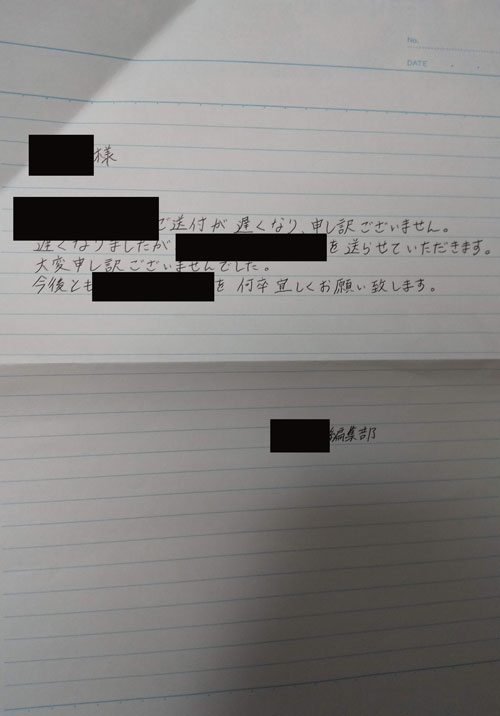 No.
DATE . .
様
で送付が遅くなり、申し訳ございません。
遅くなりましたが を送らせていただきます。
大変申し訳ございませんでした。
今後とも を何卒宜しくお願い致します。
編集部